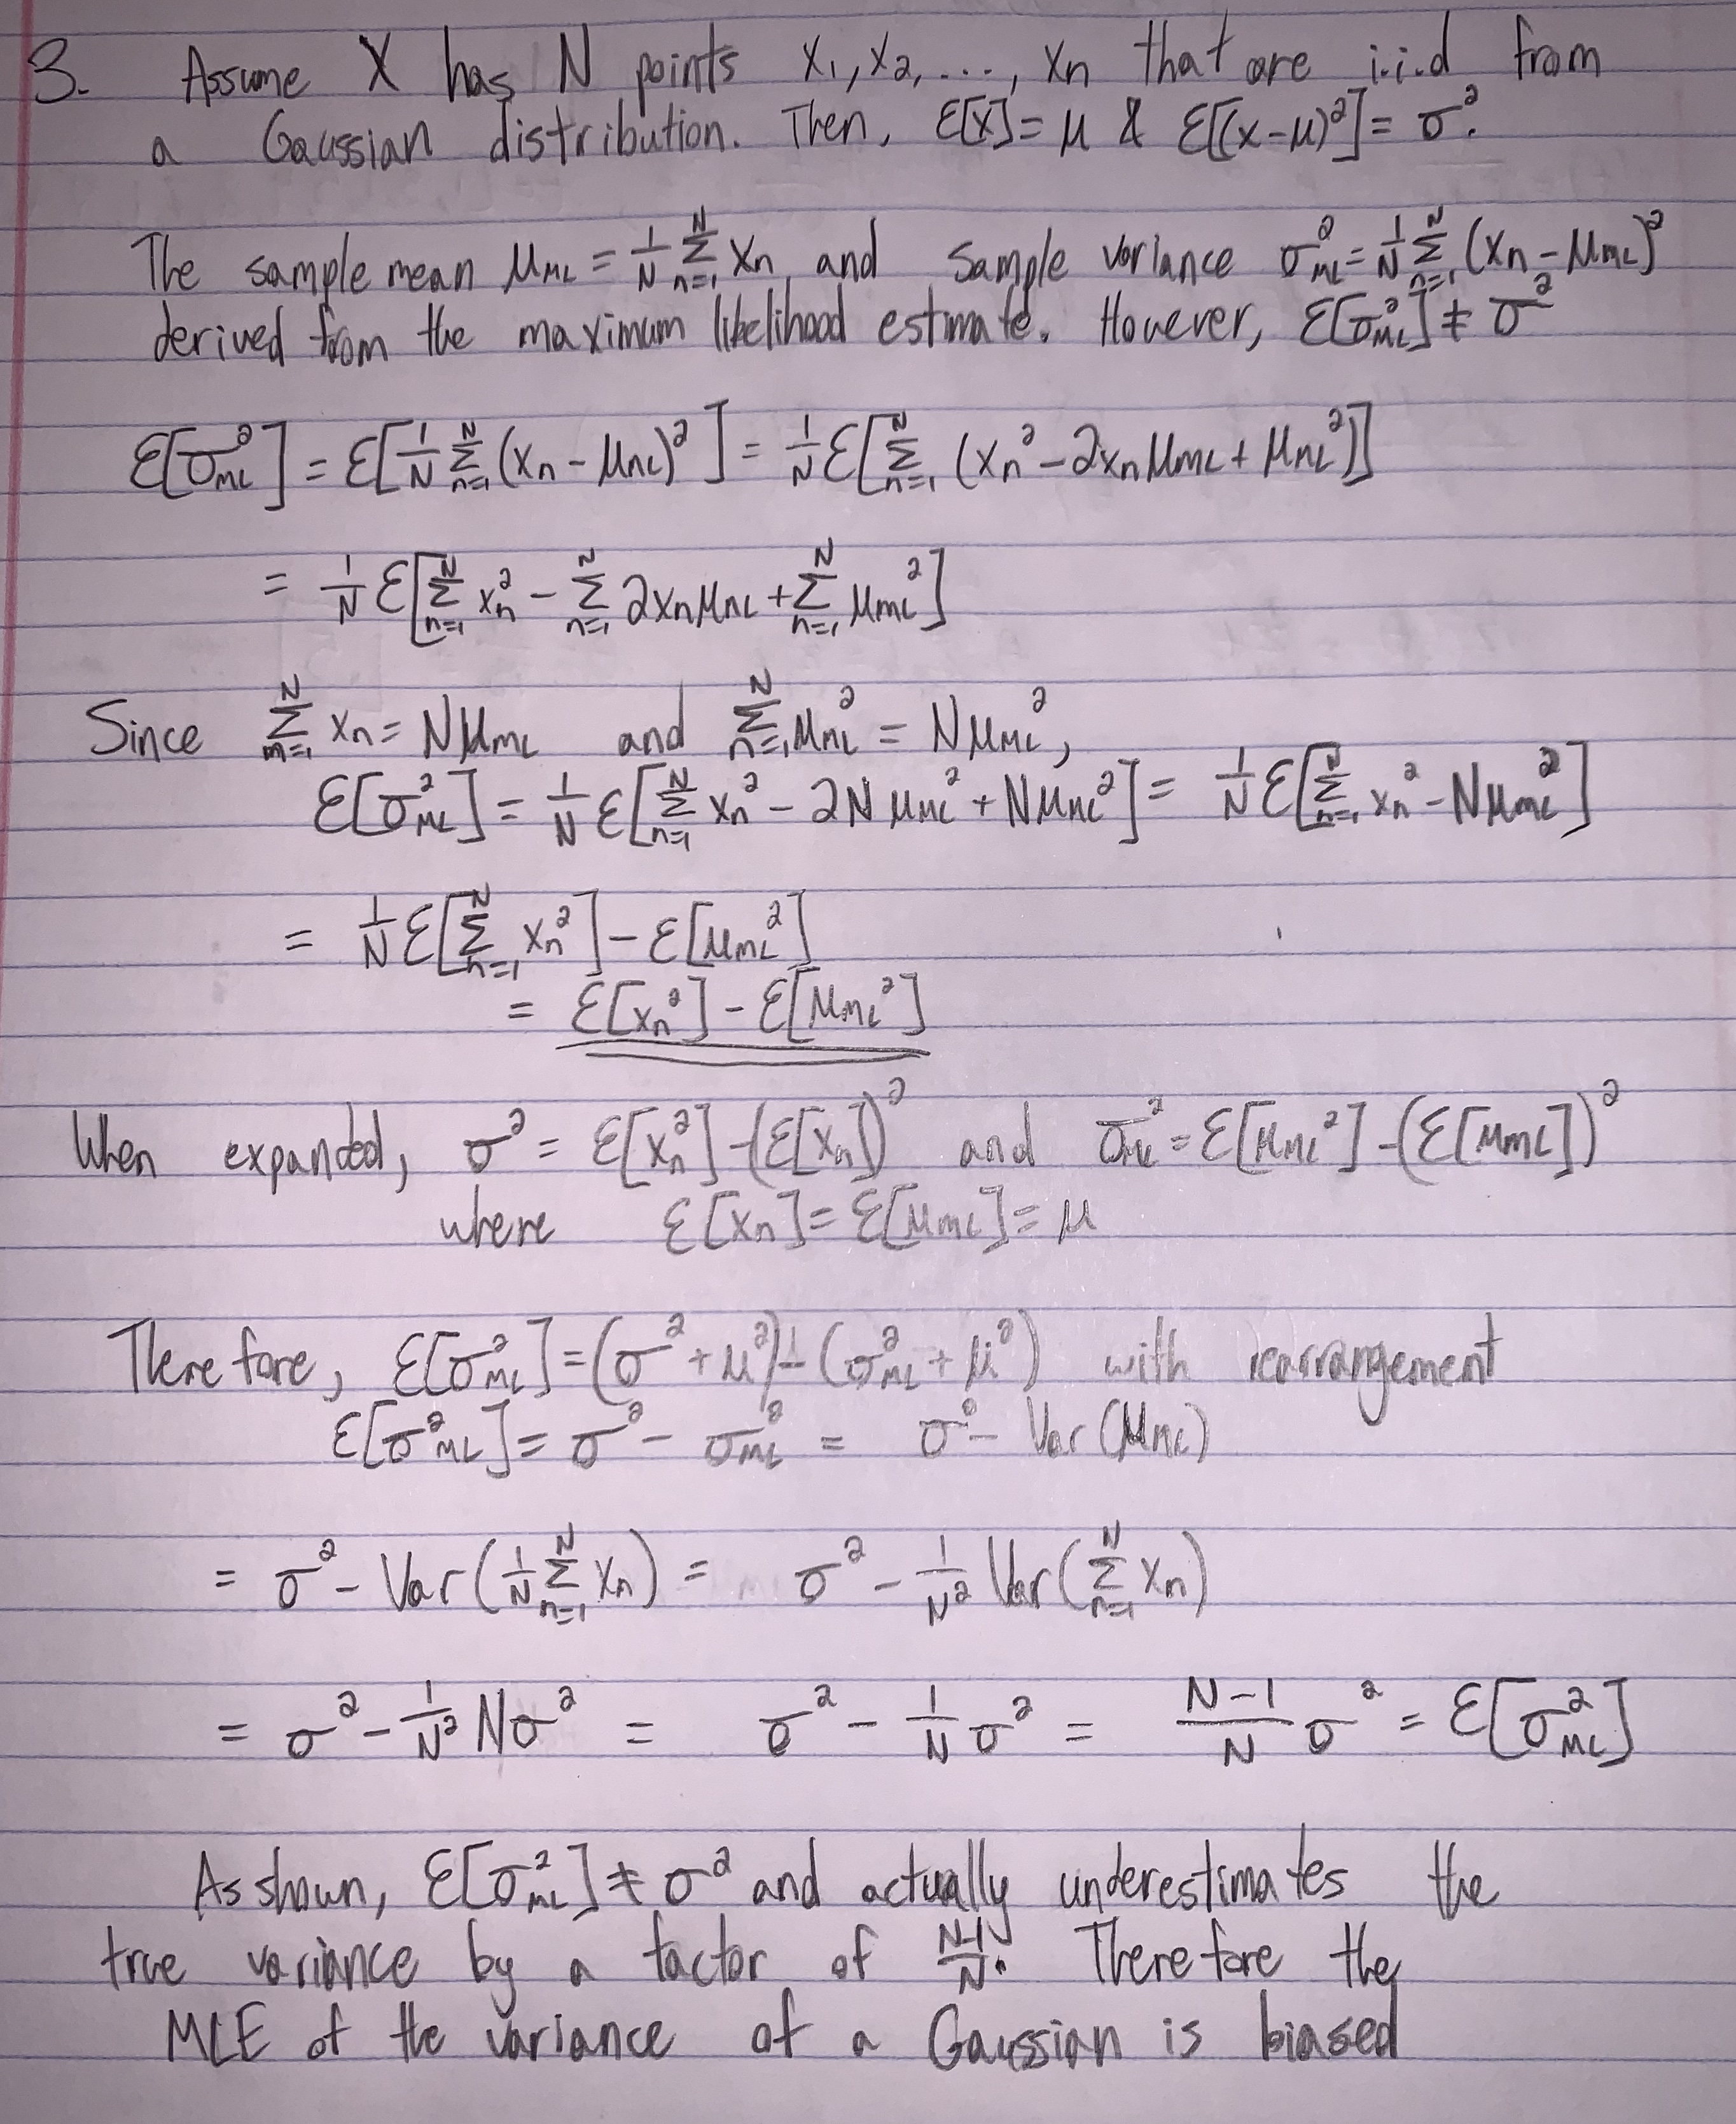 3. Assume X has N points x₁, x₂, ...., xn that are i.i.d from
a Gaussian distribution. Then, ε[x] = μ & ε[(x-μ)²] = σ².
The sample mean μ_ML = 1/N Σ_{n=1}^{N} xn and sample variance σ²_ML = 1/N Σ_{n=1}^{N} (xn - μ_ML)²
derived from the maximum likelihood estimate. However, ε[σ²_ML] ≠ σ²
ε[σ²_ML] = ε[1/N Σ_{n=1}^{N} (xn - μ_ML)²] = 1/N ε[Σ_{n=1}^{N} (xn² - 2xn μ_ML + μ_ML²)]
= 1/N ε[Σ_{n=1}^{N} xn² - Σ_{n=1}^{N} 2xn μ_ML + Σ_{n=1}^{N} μ_ML²]
Since Σ_{m=1}^{N} xn = Nμ_ML and Σ_{n=1}^{N} μ_ML² = Nμ_ML²,
ε[σ²_ML] = 1/N ε[Σ_{n=1}^{N} xn² - 2Nμ_ML² + Nμ_ML²] = 1/N ε[Σ_{n=1}^{N} xn² - Nμ_ML²]
= 1/N ε[Σ_{n=1}^{N} xn²] - ε[μ_ML²]
= ε[xn²] - ε[μ_ML²]
When expanded, σ² = ε[xn²] - (ε[xn])² and σ²_ML = ε[μ_ML²] - (ε[μ_ML])²
where ε[xn] = ε[μ_ML] = μ
Therefore, ε[σ²_ML] = (σ² + μ²) - (σ²_ML + μ²) with rearrangement
ε[σ²_ML] = σ² - σ²_ML = σ² - Var(μ_ML)
= σ² - Var(1/N Σ_{n=1}^{N} xn) = σ² - 1/N² Var(Σ_{n=1}^{N} xn)
= σ² - 1/N² Nσ² = σ² - 1/N σ² = N-1/N σ² = ε[σ²_ML]
As shown, ε[σ²_ML] ≠ σ² and actually underestimates the
true variance by a factor of N-1/N. Therefore the
MLE of the variance of a Gaussian is biased